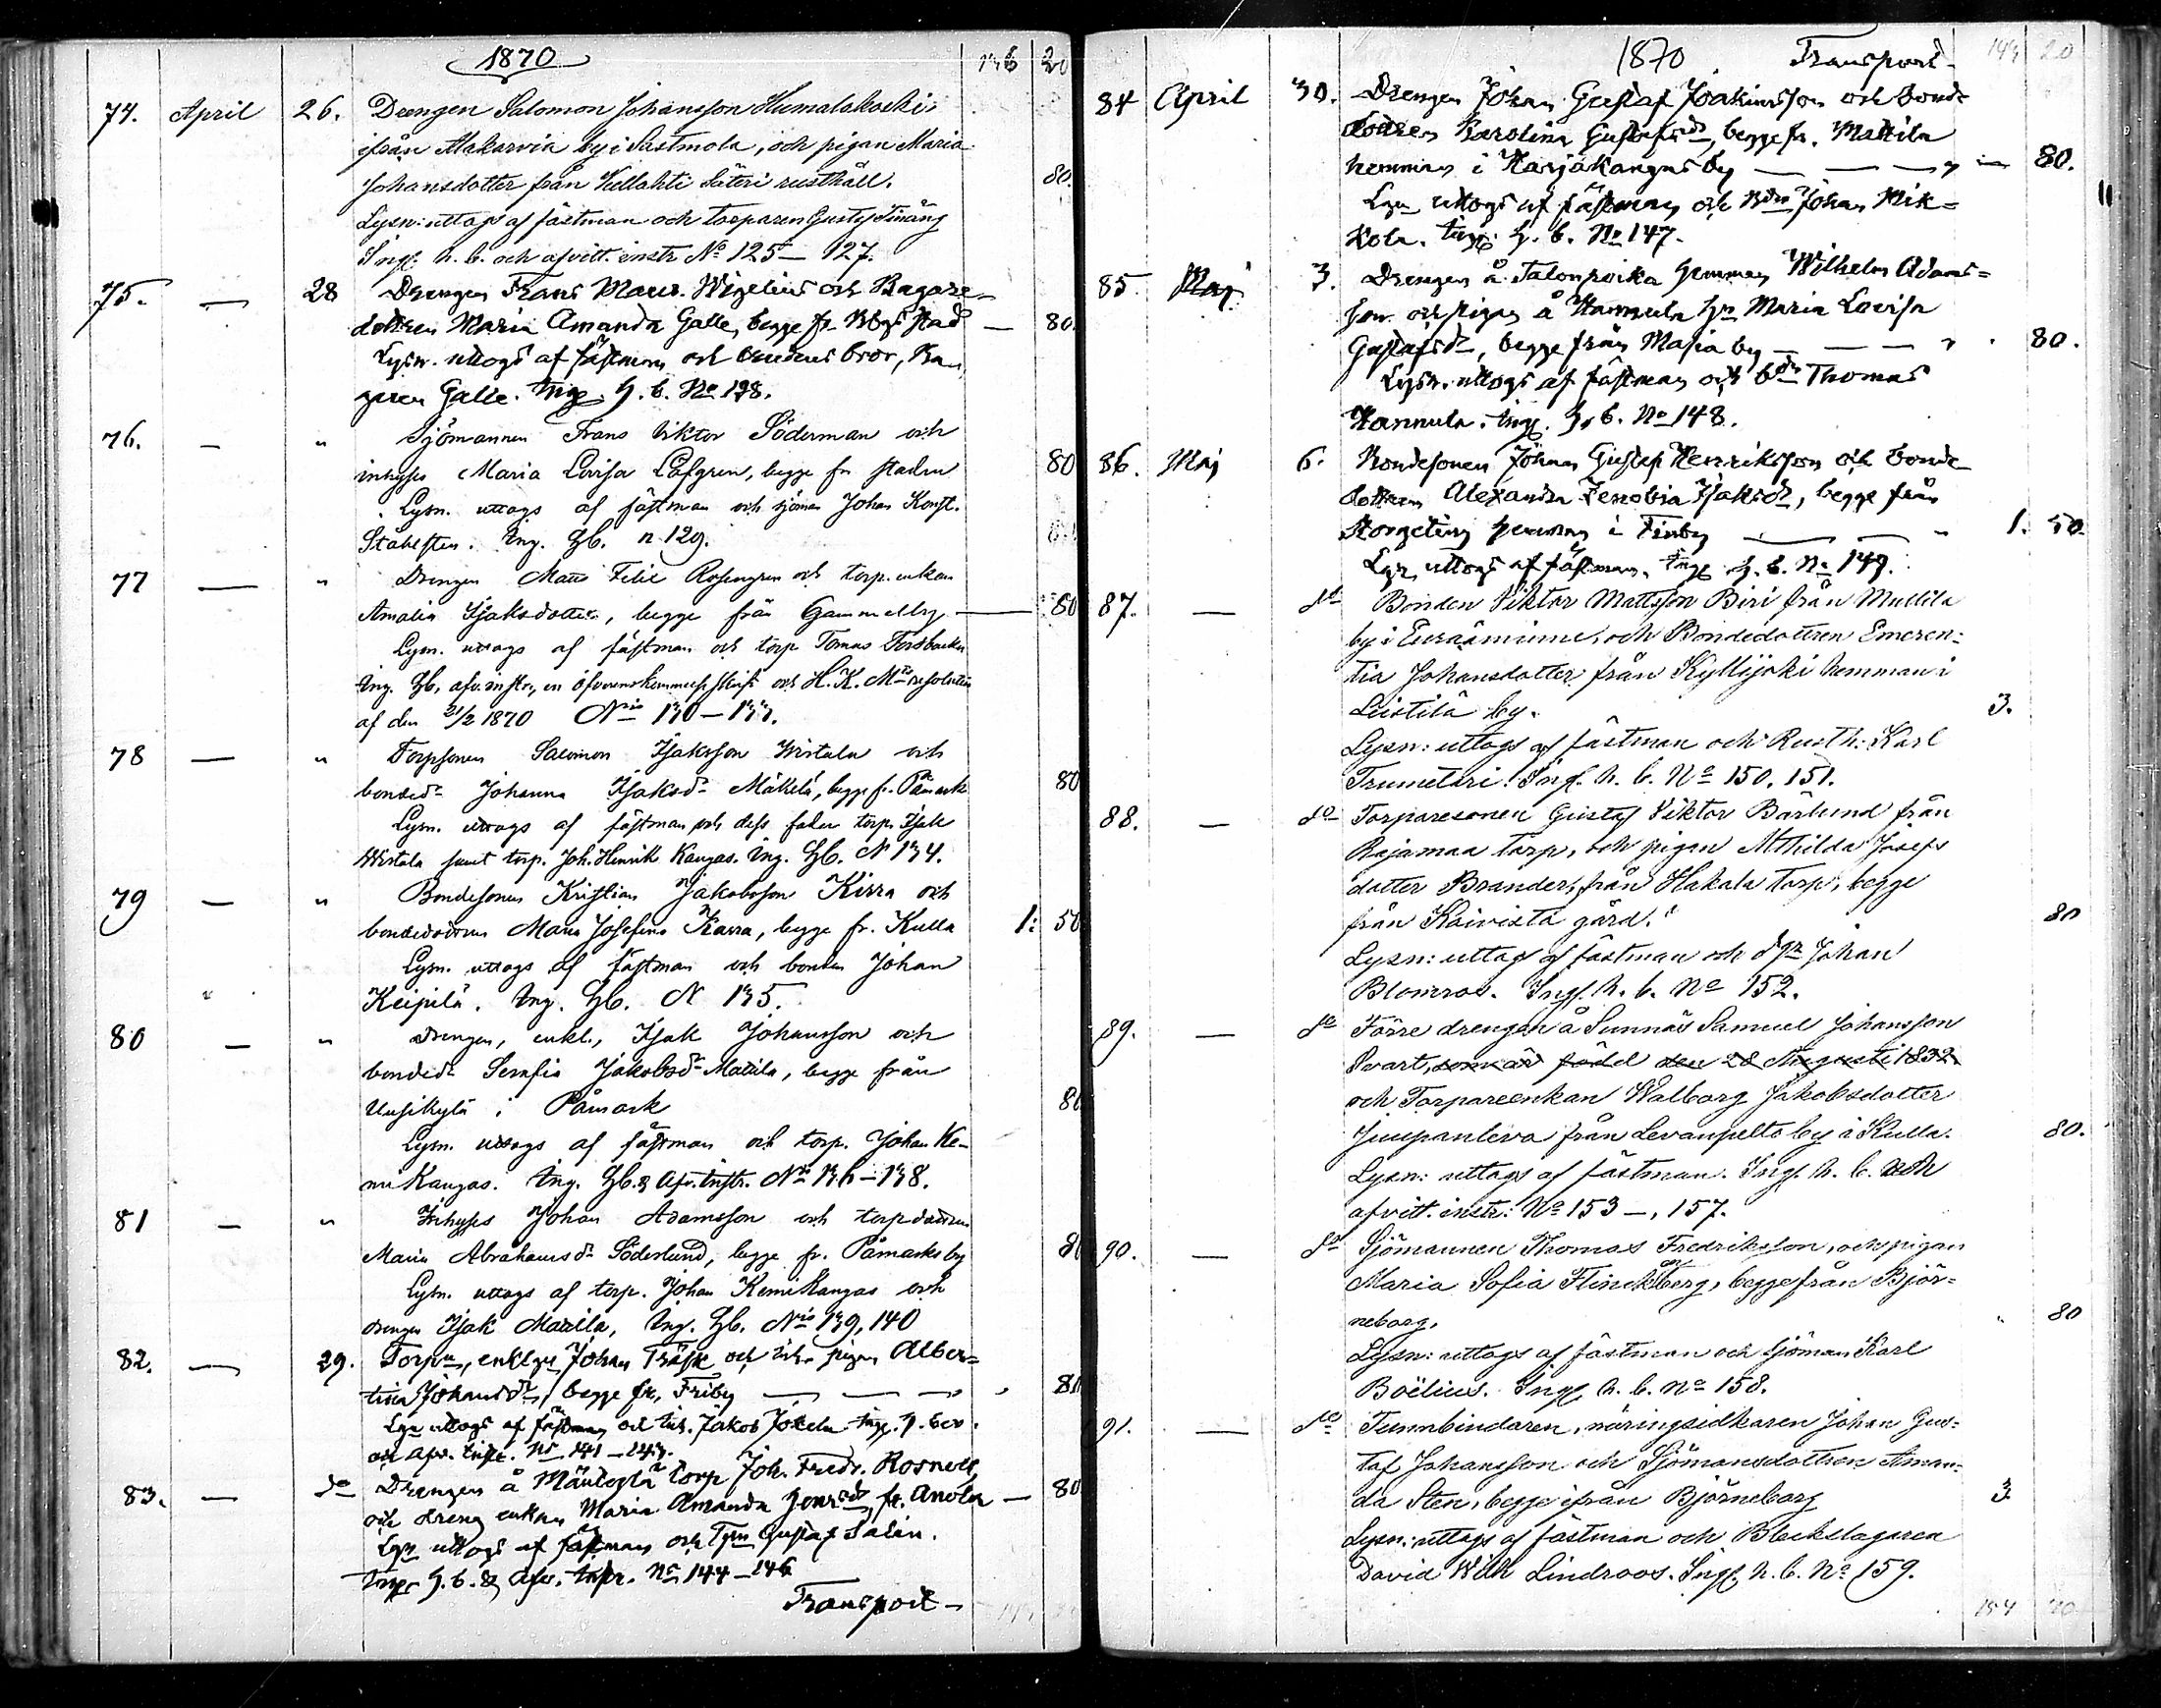 1870 136 20
74. April 26. Drengen Salomon Johansson Humalakoski,
ifrån Makarvia by i Sastmola, och pigan Maria
Johansdotter från Kellahti Säteri rusthåll. 80.
Lysn: uttogs af fästman och torparen Gustaf
Ingf. h. b. och afvitt. instr. No 125 – 127.
75. — 28 Drengen Frans Maur. Wigelius och Bagare-
dottren Maria Amanda Galle, begge fr. Bbgs stad — 80.
Lysn. uttogs af fästman och brudens bror, Ba
garen Galle. Ing. h. b. No 128.
76. — " Sjömannen Frans Viktor Söderman och
inhyses Maria Lovisa Löfgren, begge fr. staden 80
Lysn. uttogs af fästman och sjöman Johan Konst.
Ståhlsten. Ing. Hb. n. 129.
77 — " Drengen Matts Felix Rosengren och torp. enkan
Amalia Isaksdotter, begge från Gammelby — 80
Lysn. uttogs af fästman och torp Tomas Forsbacka
Ing. Hb, afv. instr., en öfverenskommelse skrift och H. K. Mts resolution
af den 21/2 1870 Nris 130 – 133.
78 — " Torpsonen Salomon Isaksson Wirtala och
bonded:r Johanna Isaksdr Mäkelä, begge fr. Påmark 80
Lysn. uttogs af fästman och dess fader torp. Isak
Wirtala samt torp. Joh. Henrik Kangas. Ing. Hb. N 134.
79 — " Bondesonen Kristian Jakobsson Kirra och
bondedottren Maria Josefina Karra, begge fr. Kulla 1: 50
Lysn. uttogs af fästman och bonden Johan
Keipilä. Ing. Hb. N 135.
80 — " Drengen, enkl., Isak Johansson och
bonded:r Serafia Jakobsdr Mattila, begge från
Uusikylä i Påmark 80
Lysn. uttogs af fästman och torp. Johan Ke-
mikangas. Ing. Hb. & Afv. Instr. Nris 136 – 138.
81 — " Inhyses Johan Adamsson och torpdottren
Maria Abrahamsdr Söderlund, begge fr. Påmarks by 80
Lysn. uttogs af torp. Johan Kemikangas och
drengen Isak Mattila, Ing. Hb. Nris 139, 140
82. — 29. Torpn, enklgn Johan Träsk och pigan Alber-
tina Johansdr, begge fr. Friby — — — " 80
Lysn uttogs af fästman och Jakob Jokela Ingf. h. bev.
och afv. instr. No 141 – 143.
83. — do Drengen å Mäntylä torp Joh. Fredr. Rosnell
och dreng enkan Maria Amanda Henrsdr, fr. Anola — 80
Lysn uttogs af fästman och Tpn Gustaf Salin.
Ingf. h. b. & afv. instr. No 144 – 146
Transport –
1870 Transport – 143 20
84 April 30. Drengen Johan Gustaf Joakimsson och bonde
dottren Karolina Gustafsdr, begge fr. Mattila
hemman i Harjakangas by — — — " 80.
Lysn uttogs af fästman och Bdn Johan Mik=
kola. Ingf. h. b. No 147.
85. Maj 3. Drengen å Talonpoika hemman Wilhelm Adams=
son och pigan å Hannula hn Maria Lovisa
Gustafsdr, begge från Masia by — — — " 80.
Lysn. uttogs af fästman och bdn Thomas
Hannula. Ingf. h. b. No 148.
86. Maj 6. Bondesonen Johan Gustaf Henriksson och bonde
dottren Alexandra Zenobia Isaksdr, begge från
Storgeting hemman i Finby — — " 1. 50.
Lysn uttogs af fästman. Ingf. h. b. No 149.
87. — do Bonden Viktor Mattsson Biri från Mullila
by i Euraåminne, och Bondedottren Emeren:
tia Johansdotter från Kyllijoki hemman i
Leistilä by. 3.
Lysn: uttogs af fästman och Rusth: Karl
Trumetari. Ingf. h. b. No 150. 151.
88. — do Torparesonen Gustaf Viktor Bärlund från
Rajamaa torp, och pigan Mathilda Josefs
dotter Brander, från Hakala torp, begge
från Koivisto gård. 80
Lysn: uttogs af fästman och dgn Johan
Blomros. Ingf. h. b. No 152.
89. — do Förre drengen å Sunnäs Samuel Johansson
Svart, som är född den 28 Augusti 1832
och Torpareenkan Walborg Jakobsdotter
Juupanleva från Levanpelto by i Kulla. 80.
Lysn: uttogs af fästman. Ingf. h. b. och
afvitt. instr: No 153 –, 157.
90. — do Sjömannen Thomas Fredriksson, och pigan
Maria Sofia Flinckenberg, begge från Björ=
neborg. 80
Lysn: uttogs af fästman och Sjöman Karl
Boëlius. Ingf. h. b. No 158.
91. — do Tunnbindaren, näringsidkaren Johan Gus=
taf Johansson och Sjömansdottren Aman=
da Sten, begge ifrån Björneborg 3
Lysn: uttogs af fästman och Bleckslagaren
David Wilh Lindroos. Ingf. h. b. No 159.
154 70